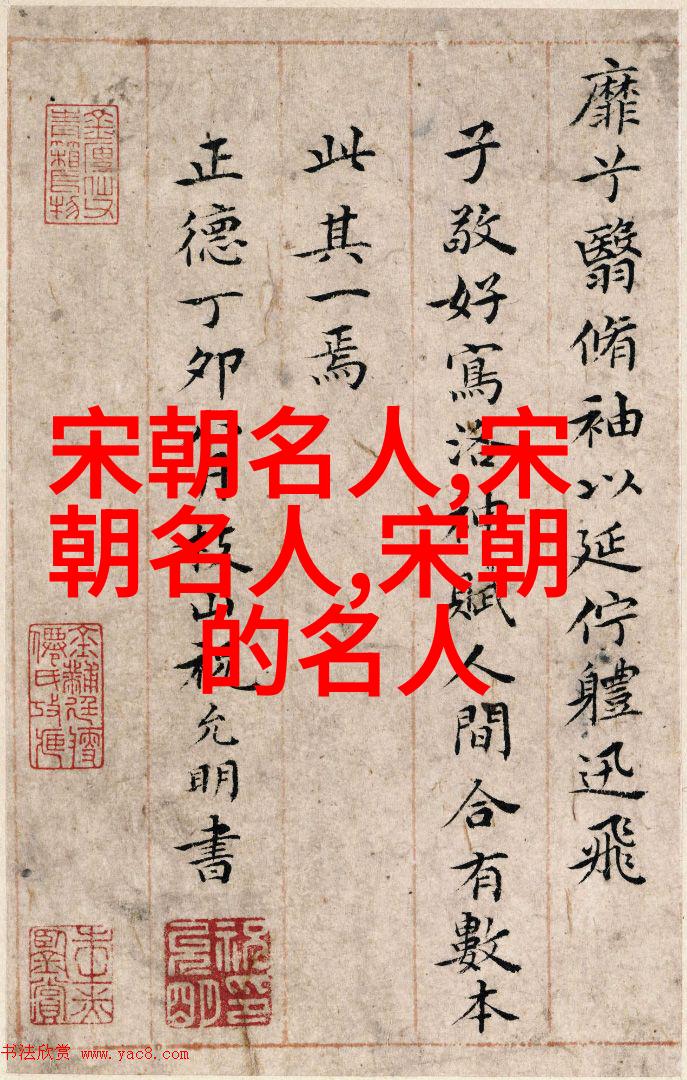 靡兮翳脩袖以延佇體迅飛
子敬好寫洛神賦人間合有數本
此其一焉
正德丁卯八月枝山祝允明書
宋朝名人,宋
朝名人,宋朝
的名人
书法欣赏 www.yac8.com